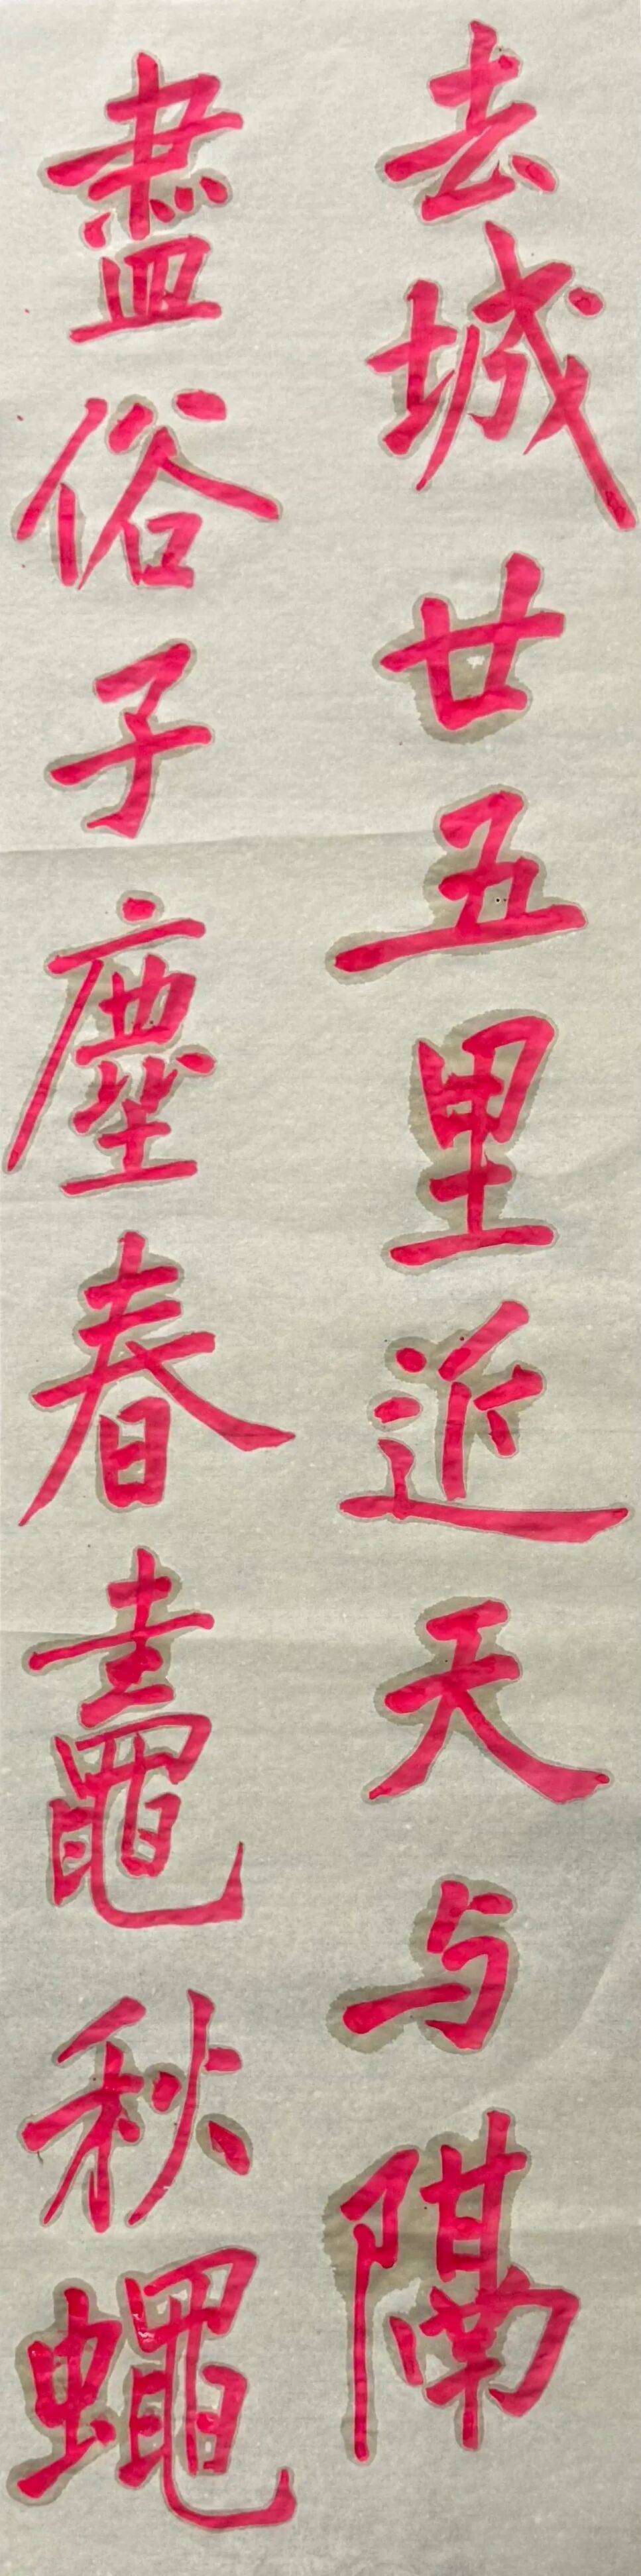 去城廿五里近天与隔
盡俗子塵春鼃秋蠅